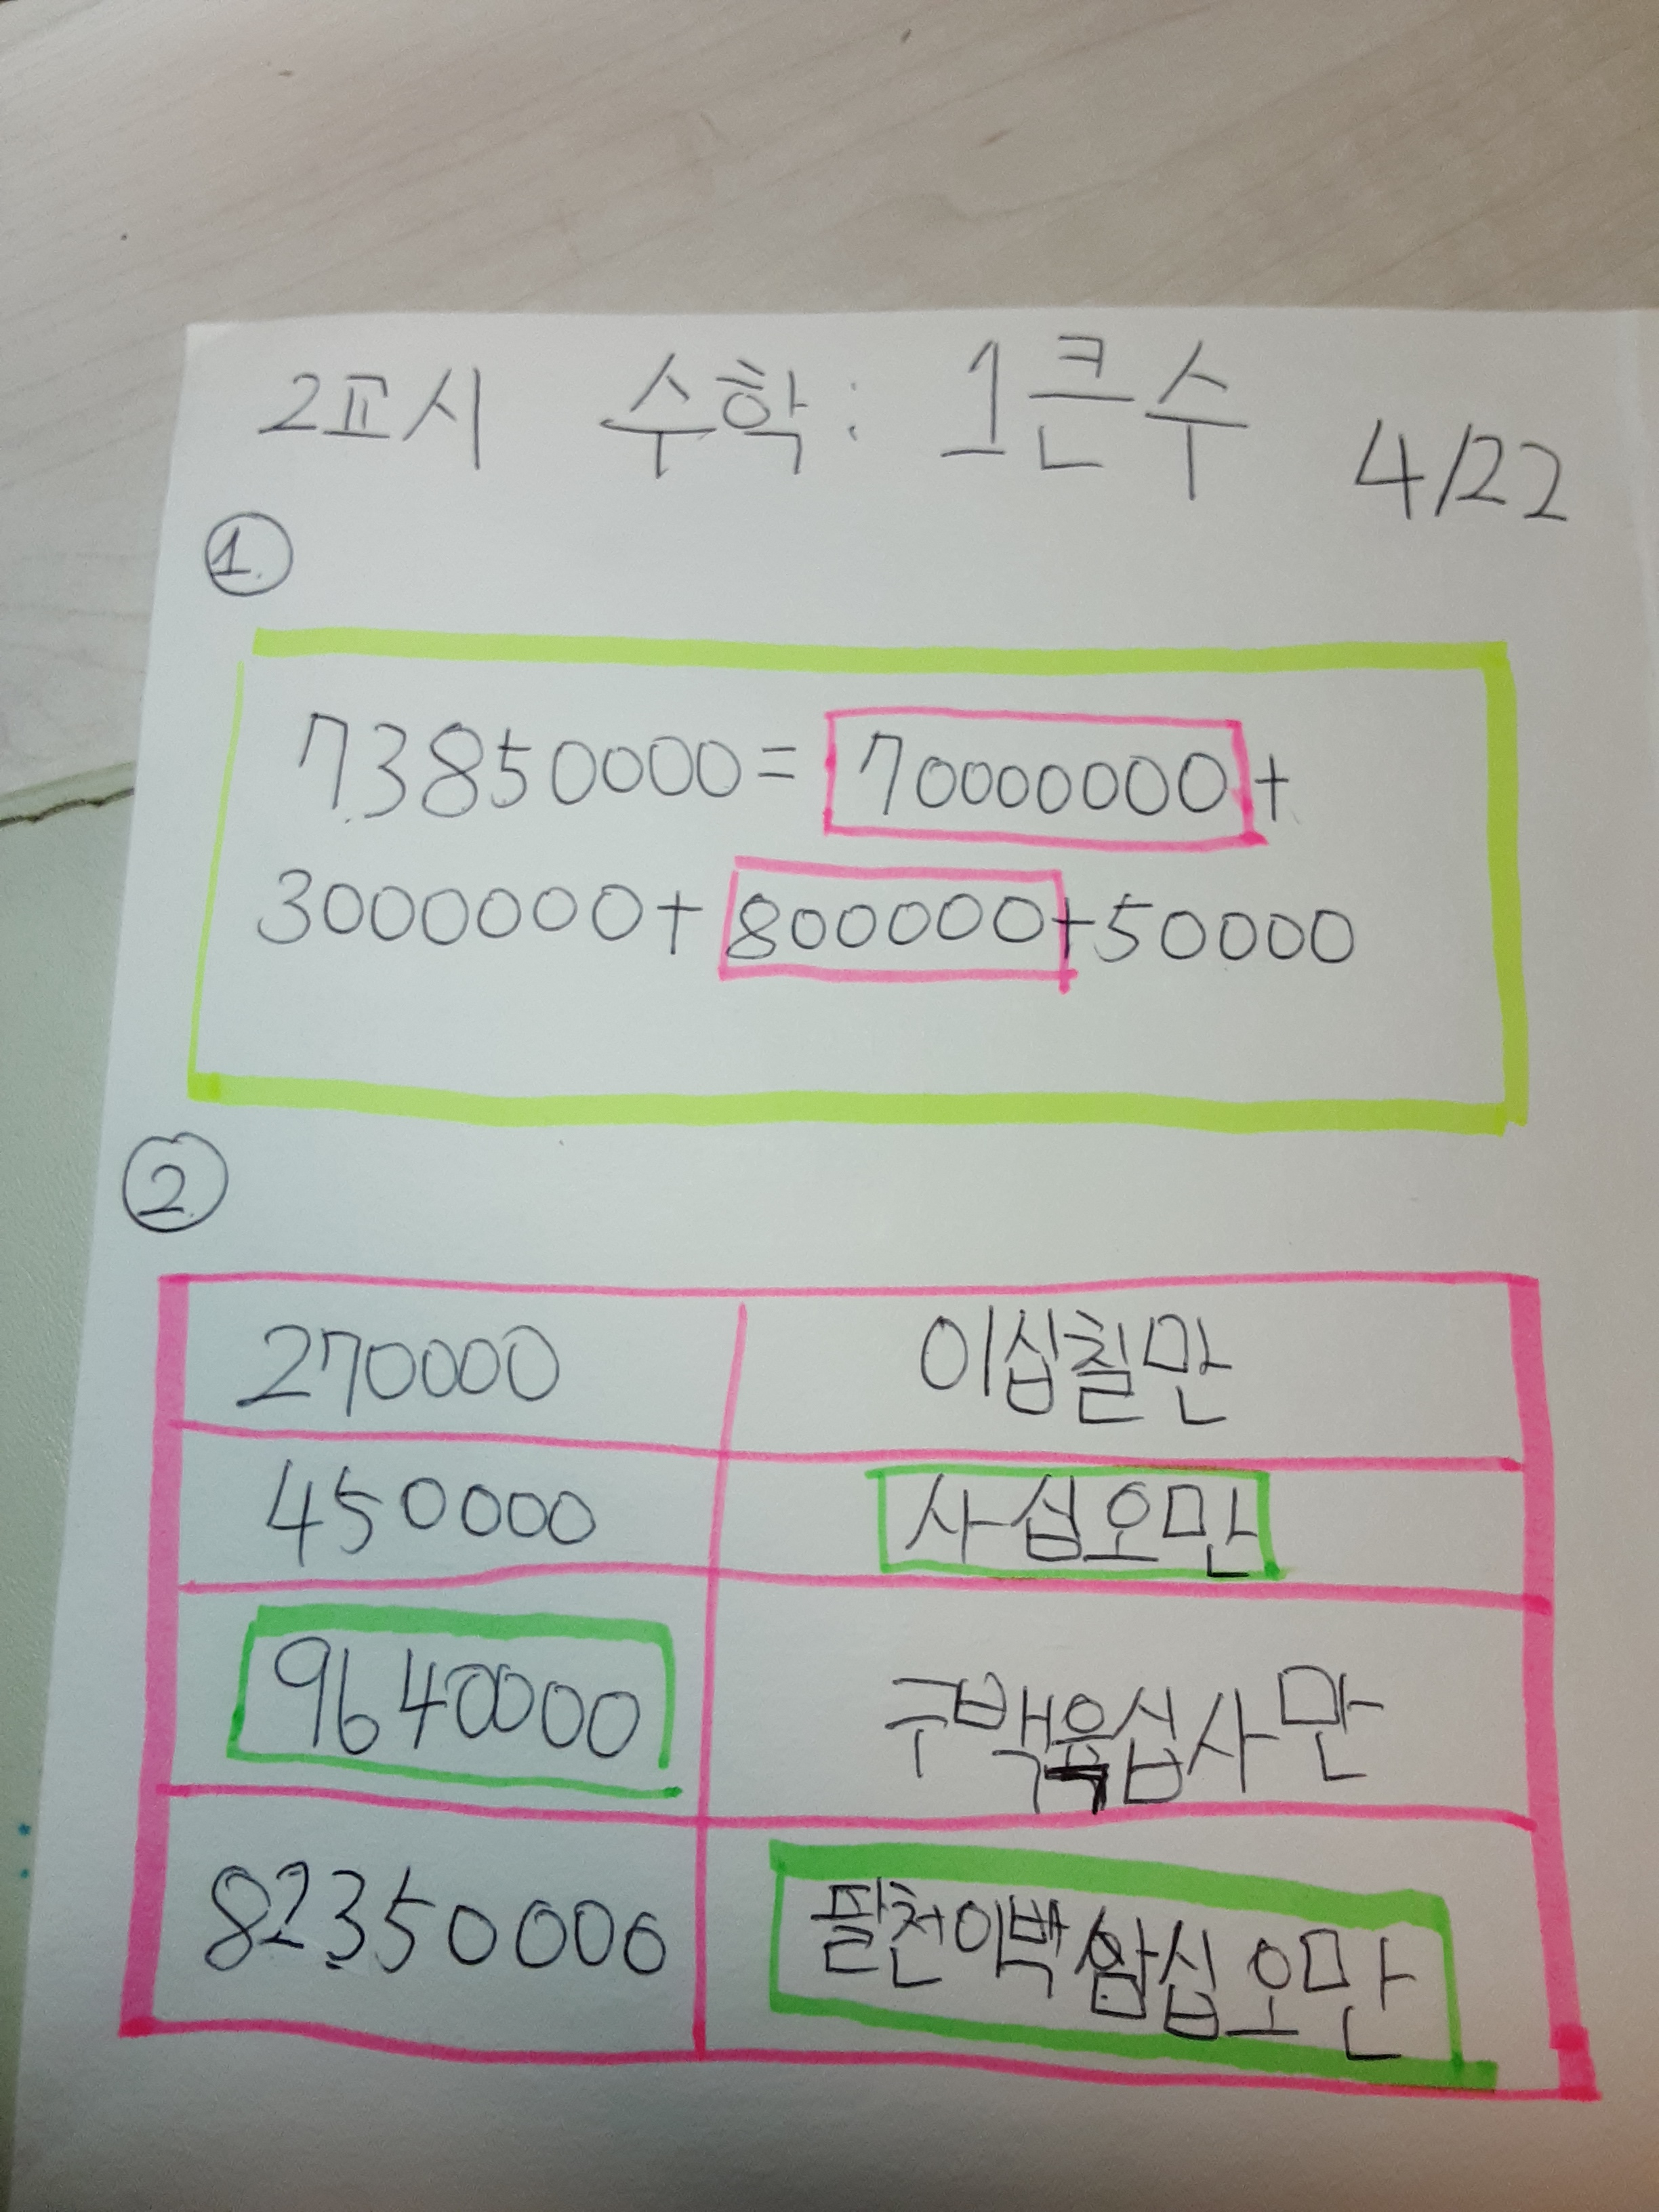 2교시 수학: 1큰수 4/22
①
73850000= 70000000+
3000000+800000+50000
②
270000 이십칠만
450000 사십오만
9640000 구백육십사만
82350000 팔천이백삼십오만